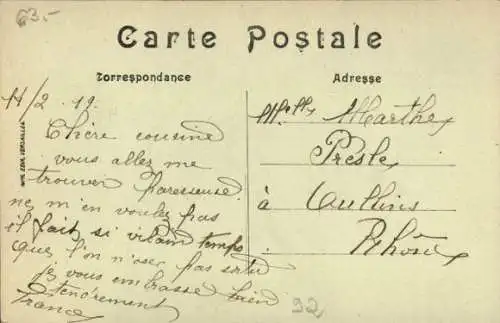 63.-
Carte Postale
Correspondance
Adresse
11/2 19.
Chère cousine
vous allez me
trouver paresseuse.
ne m'en voulez pas
il fait si vilain temps
que l'on n'ose pas sortir
je vous embrasse bien
tendrement
France
Melle Marthe
Presle
à Oullins
Rhône
92